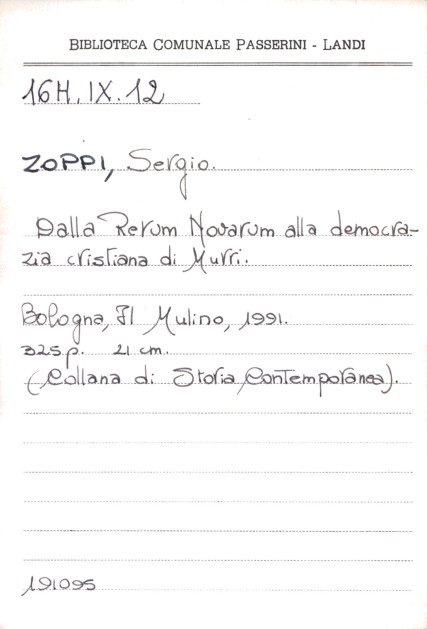 BIBLIOTECA COMUNALE PASSERINI - LANDI
16H.IX.12
ZOPPI, Sergio.
Dalla Rerum Novarum alla democra-
zia cristiana di Murri.
Bologna, Il Mulino, 1991.
325 p. 21 cm.
(Collana di Storia Contemporanea).
191095